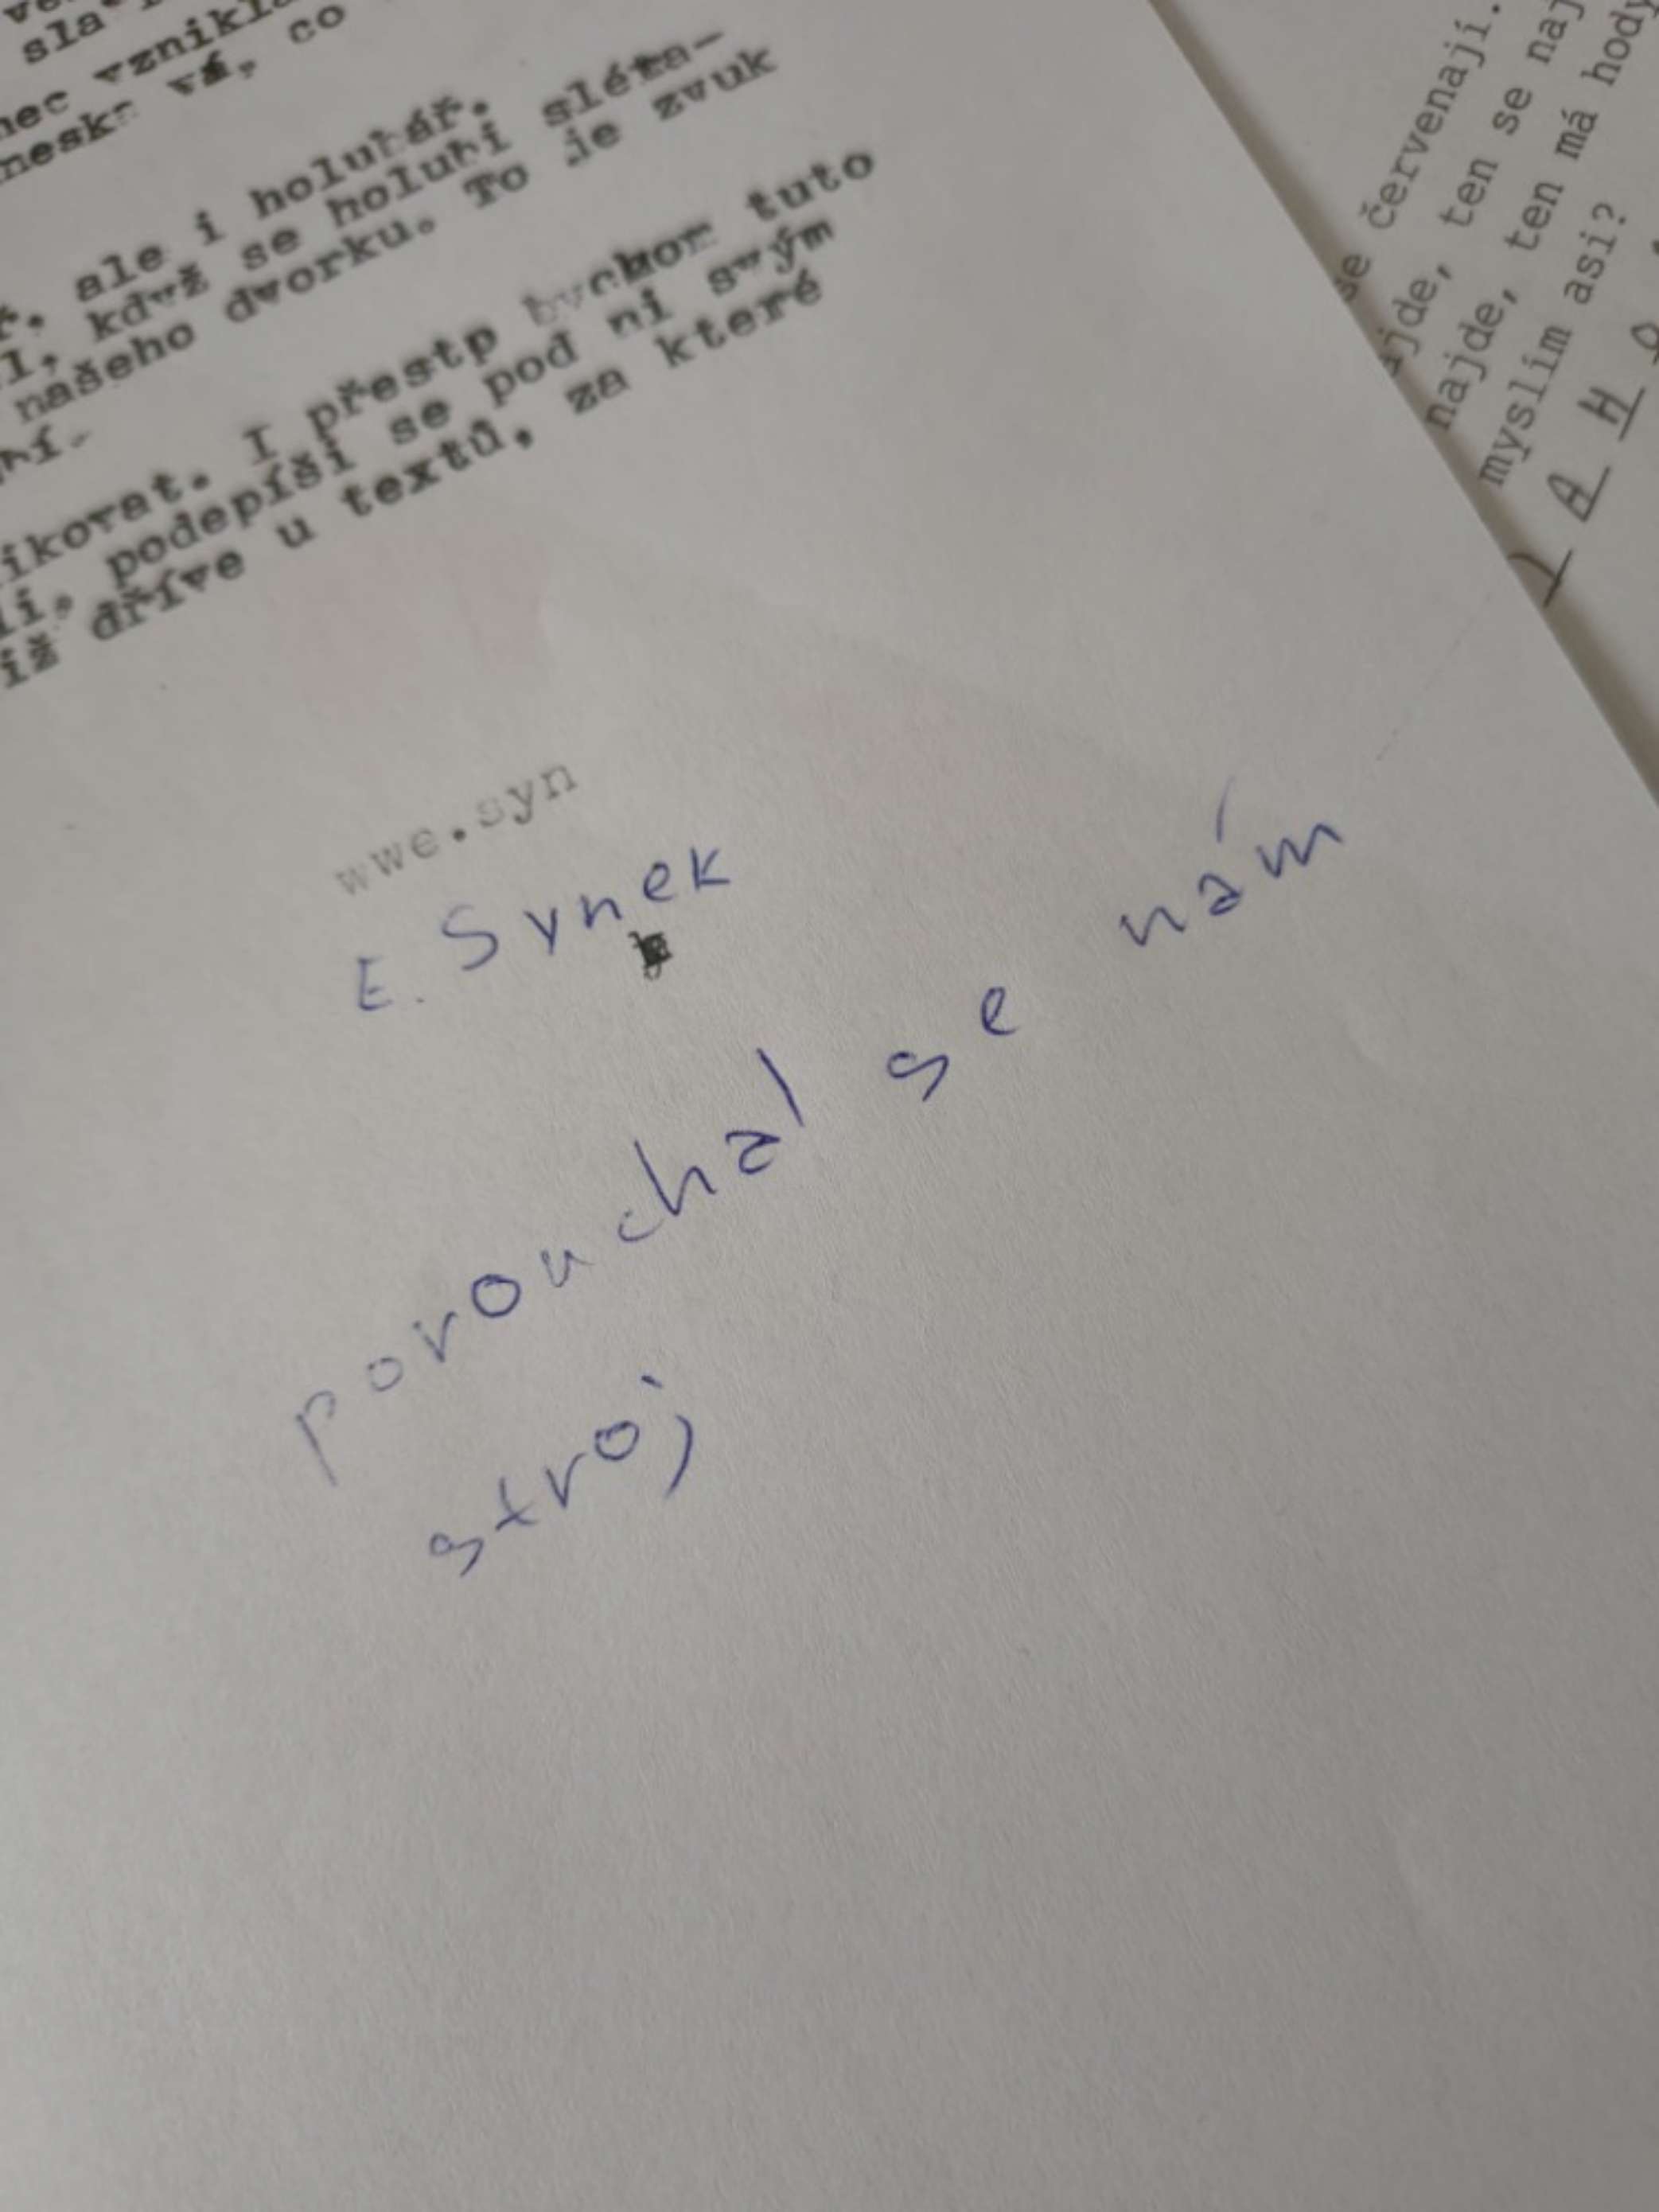 co
ale i holubář.
když se holubi sléta-
našeho dvorku. To je zvuk
I přestp bychom tuto
podepíši se pod ni svým
iž dříve u textů, za které
wwe.syn
E. Synek
porouchal se nám
stroj
se červenají.
ten se naj
najde, ten má hody
myslím asi?
A H